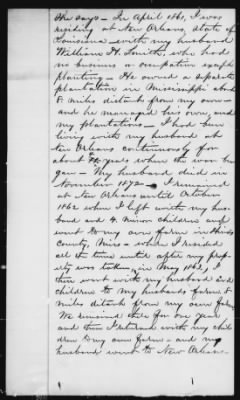 She says - In April 1861, I was
residing at New Orleans, State of
Louisiana - with my husband
William H. Smith, who had
no business or occupation except
planting - He owned a separate
plantation in Mississippi about
8 miles distant from my own -
and he managed his own, and
my plantations - I had been
living with my husband at
New Orleans continuously for
about years when the war be
gan - My husband died in
November 1872 - I remained
at New Orleans until October
1862 when I left with my hus
band and 4 minor children and
went to my own farm in Hinds
County, Miss - where I resided
all the time until after my prop
erty was taken, in May 1863, I
then went with my husband and
children to my husbands farm 8
miles distant from my own farm
We remained there for one year
and then I returned with my chil
dren to my own farm - and my
husband went to New Orleans